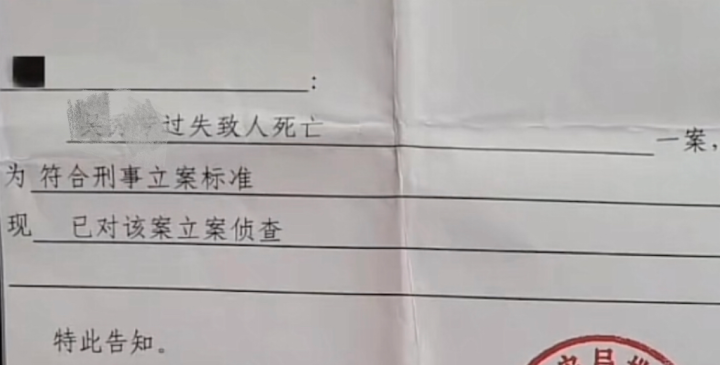 :
过失致人死亡 一案，
为 符合刑事立案标准
现 已对该案立案侦查
特此告知。